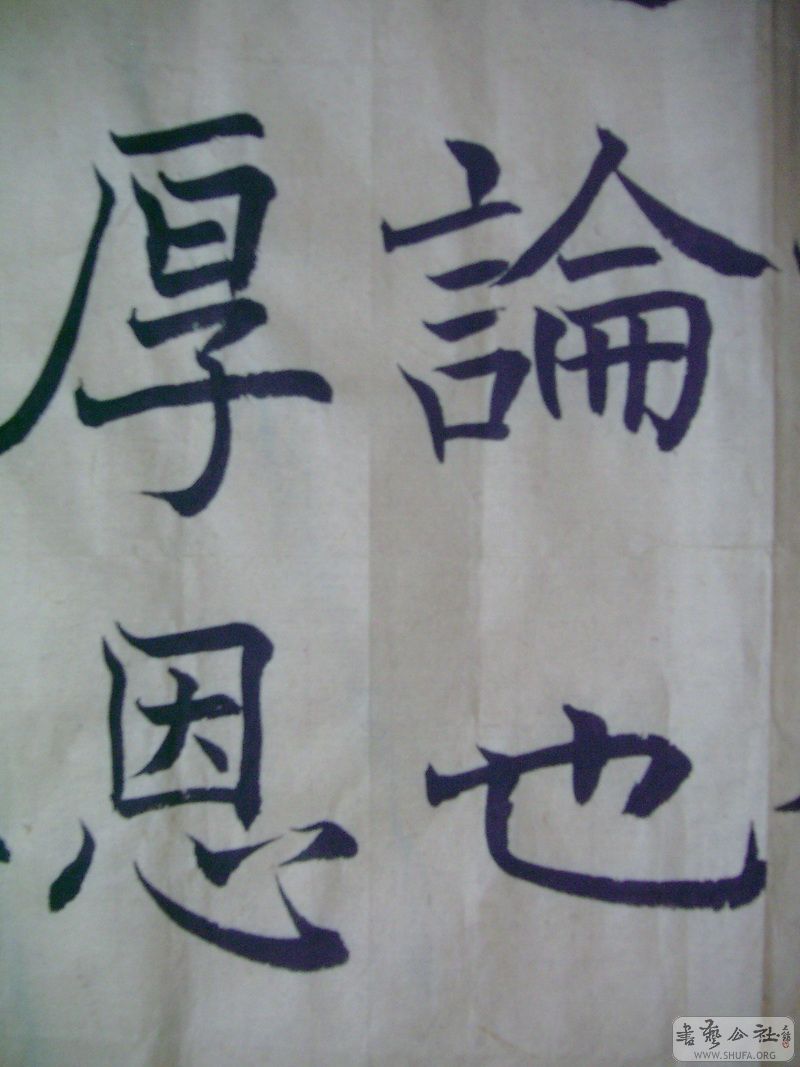 論也
厚恩
書藝公社
WWW.SHUFA.ORG